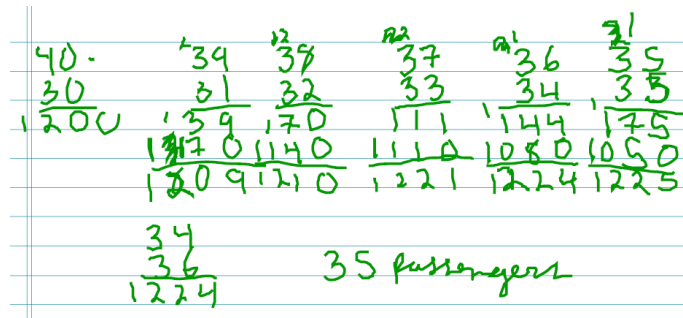 40. 39 38 37 36 35
30 31 32 33 34 35
1200 39 76 111 144 175
1170 1140 1110 1080 1050
1209 1216 1221 1224 1225
34
36 35 passengers
1224